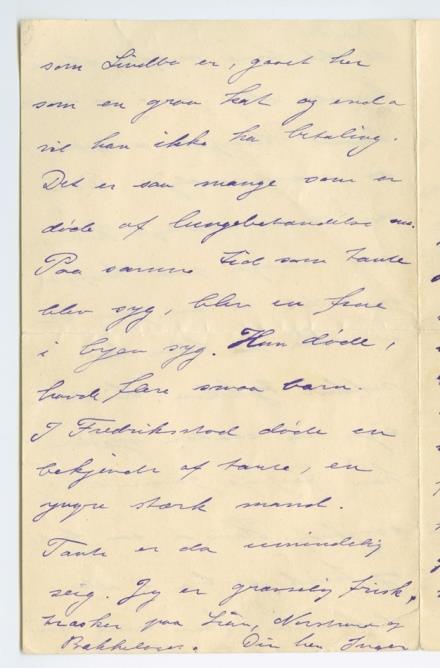 som Lindbo er, gaaet her
som en graa kat og enda
vil han ikke ha betaling.
Det er saa mange som er
døde af lungebetændelse nu.
Paa samme tid som tante
blev syg, blev en frue
i byen syg. Hun døde,
havde flere smaa barn.
I Fredriksstad døde en
bekjendt af tante, en
yngre stærk mand.
Tante er da umindelig
seig. Jeg er græsselig frisk,
trasker paa
Din hen. Inger